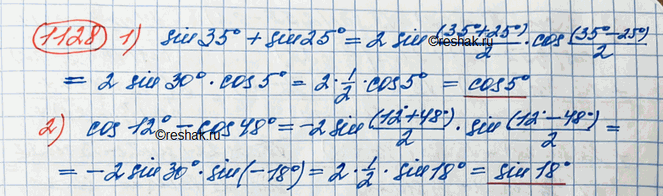 1128 1) sin 35° + sin 25° = 2 sin (35°+25°)/2 · cos (35°-25°)/2
= 2 sin 30° · cos 5° = 2 · 1/2 · cos 5° = cos 5°
2) cos 12° - cos 48° = -2 sin (12°+48°)/2 · sin (12°-48°)/2 =
= -2 sin 30° · sin(-18°) = 2 · 1/2 · sin 18° = sin 18°
©reshak.ru
©reshak.ru